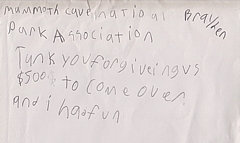 Mammoth cave national Braylen
Park Association
Tank you for giveing us
$500 to come over
and i had fun